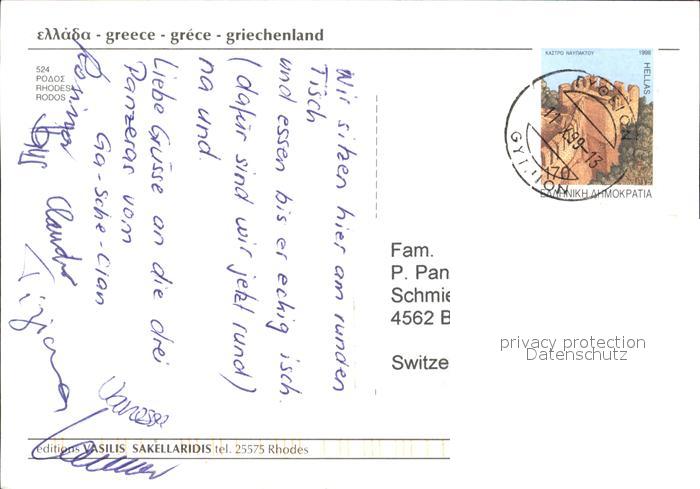 ελλάδα - greece - gréce - griechenland
524
ΡΟΔΟΣ
RHODES
RODOS
Wir sitzen hier am runden
Tisch
und essen bis er echig isch.
(dafür sind wir jetzt rund)
na und
Liebe Grüsse an die drei
Panzeras vom
Ga-sche-cian
Claudio
Tiziana
Vanessa
ΚΑΣΤΡΟ ΝΑΥΠΑΚΤΟΥ 1998
HELLAS
70
ΕΛΛΗΝΙΚΗ ΔΗΜΟΚΡΑΤΙΑ
GYTHION
Fam.
P. Pan
Schmie
4562 B
Switze
privacy protection
Datenschutz
editions VASILIS SAKELLARIDIS tel. 25575 Rhodes